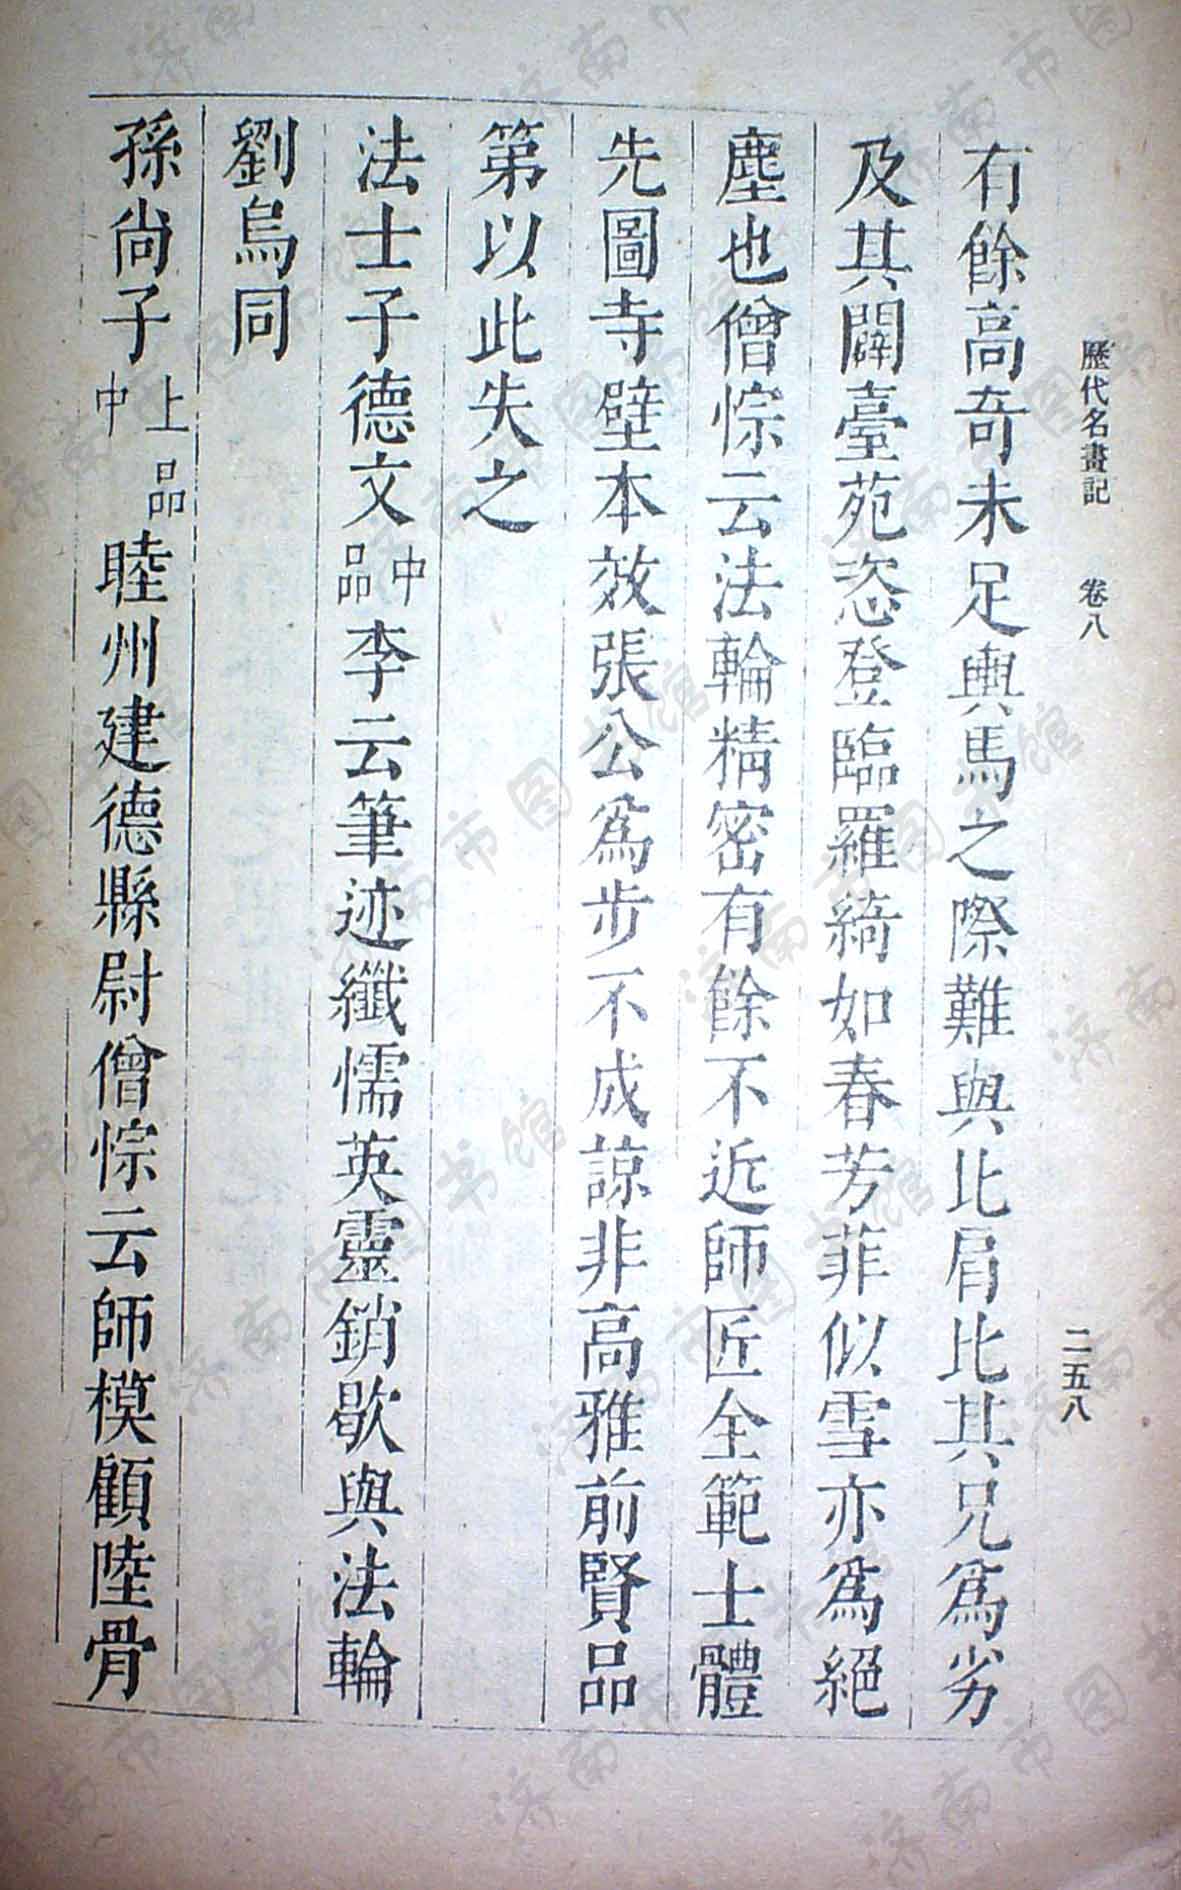 歷代名畫記　卷八　二五八
有餘高奇未足輿馬之際難與比肩比其兄爲劣
及其闢臺苑恣登臨羅綺如春芳菲似雪亦爲絕
塵也僧悰云法輪精密有餘不近師匠全範士體
先圖寺壁本效張公爲步不成諒非高雅前賢品
第以此失之
法士子德文中品李云筆迹纖懦英靈銷歇與法輪
劉烏同
孫尚子上品中睦州建德縣尉僧悰云師模顧陸骨
济南市图书馆